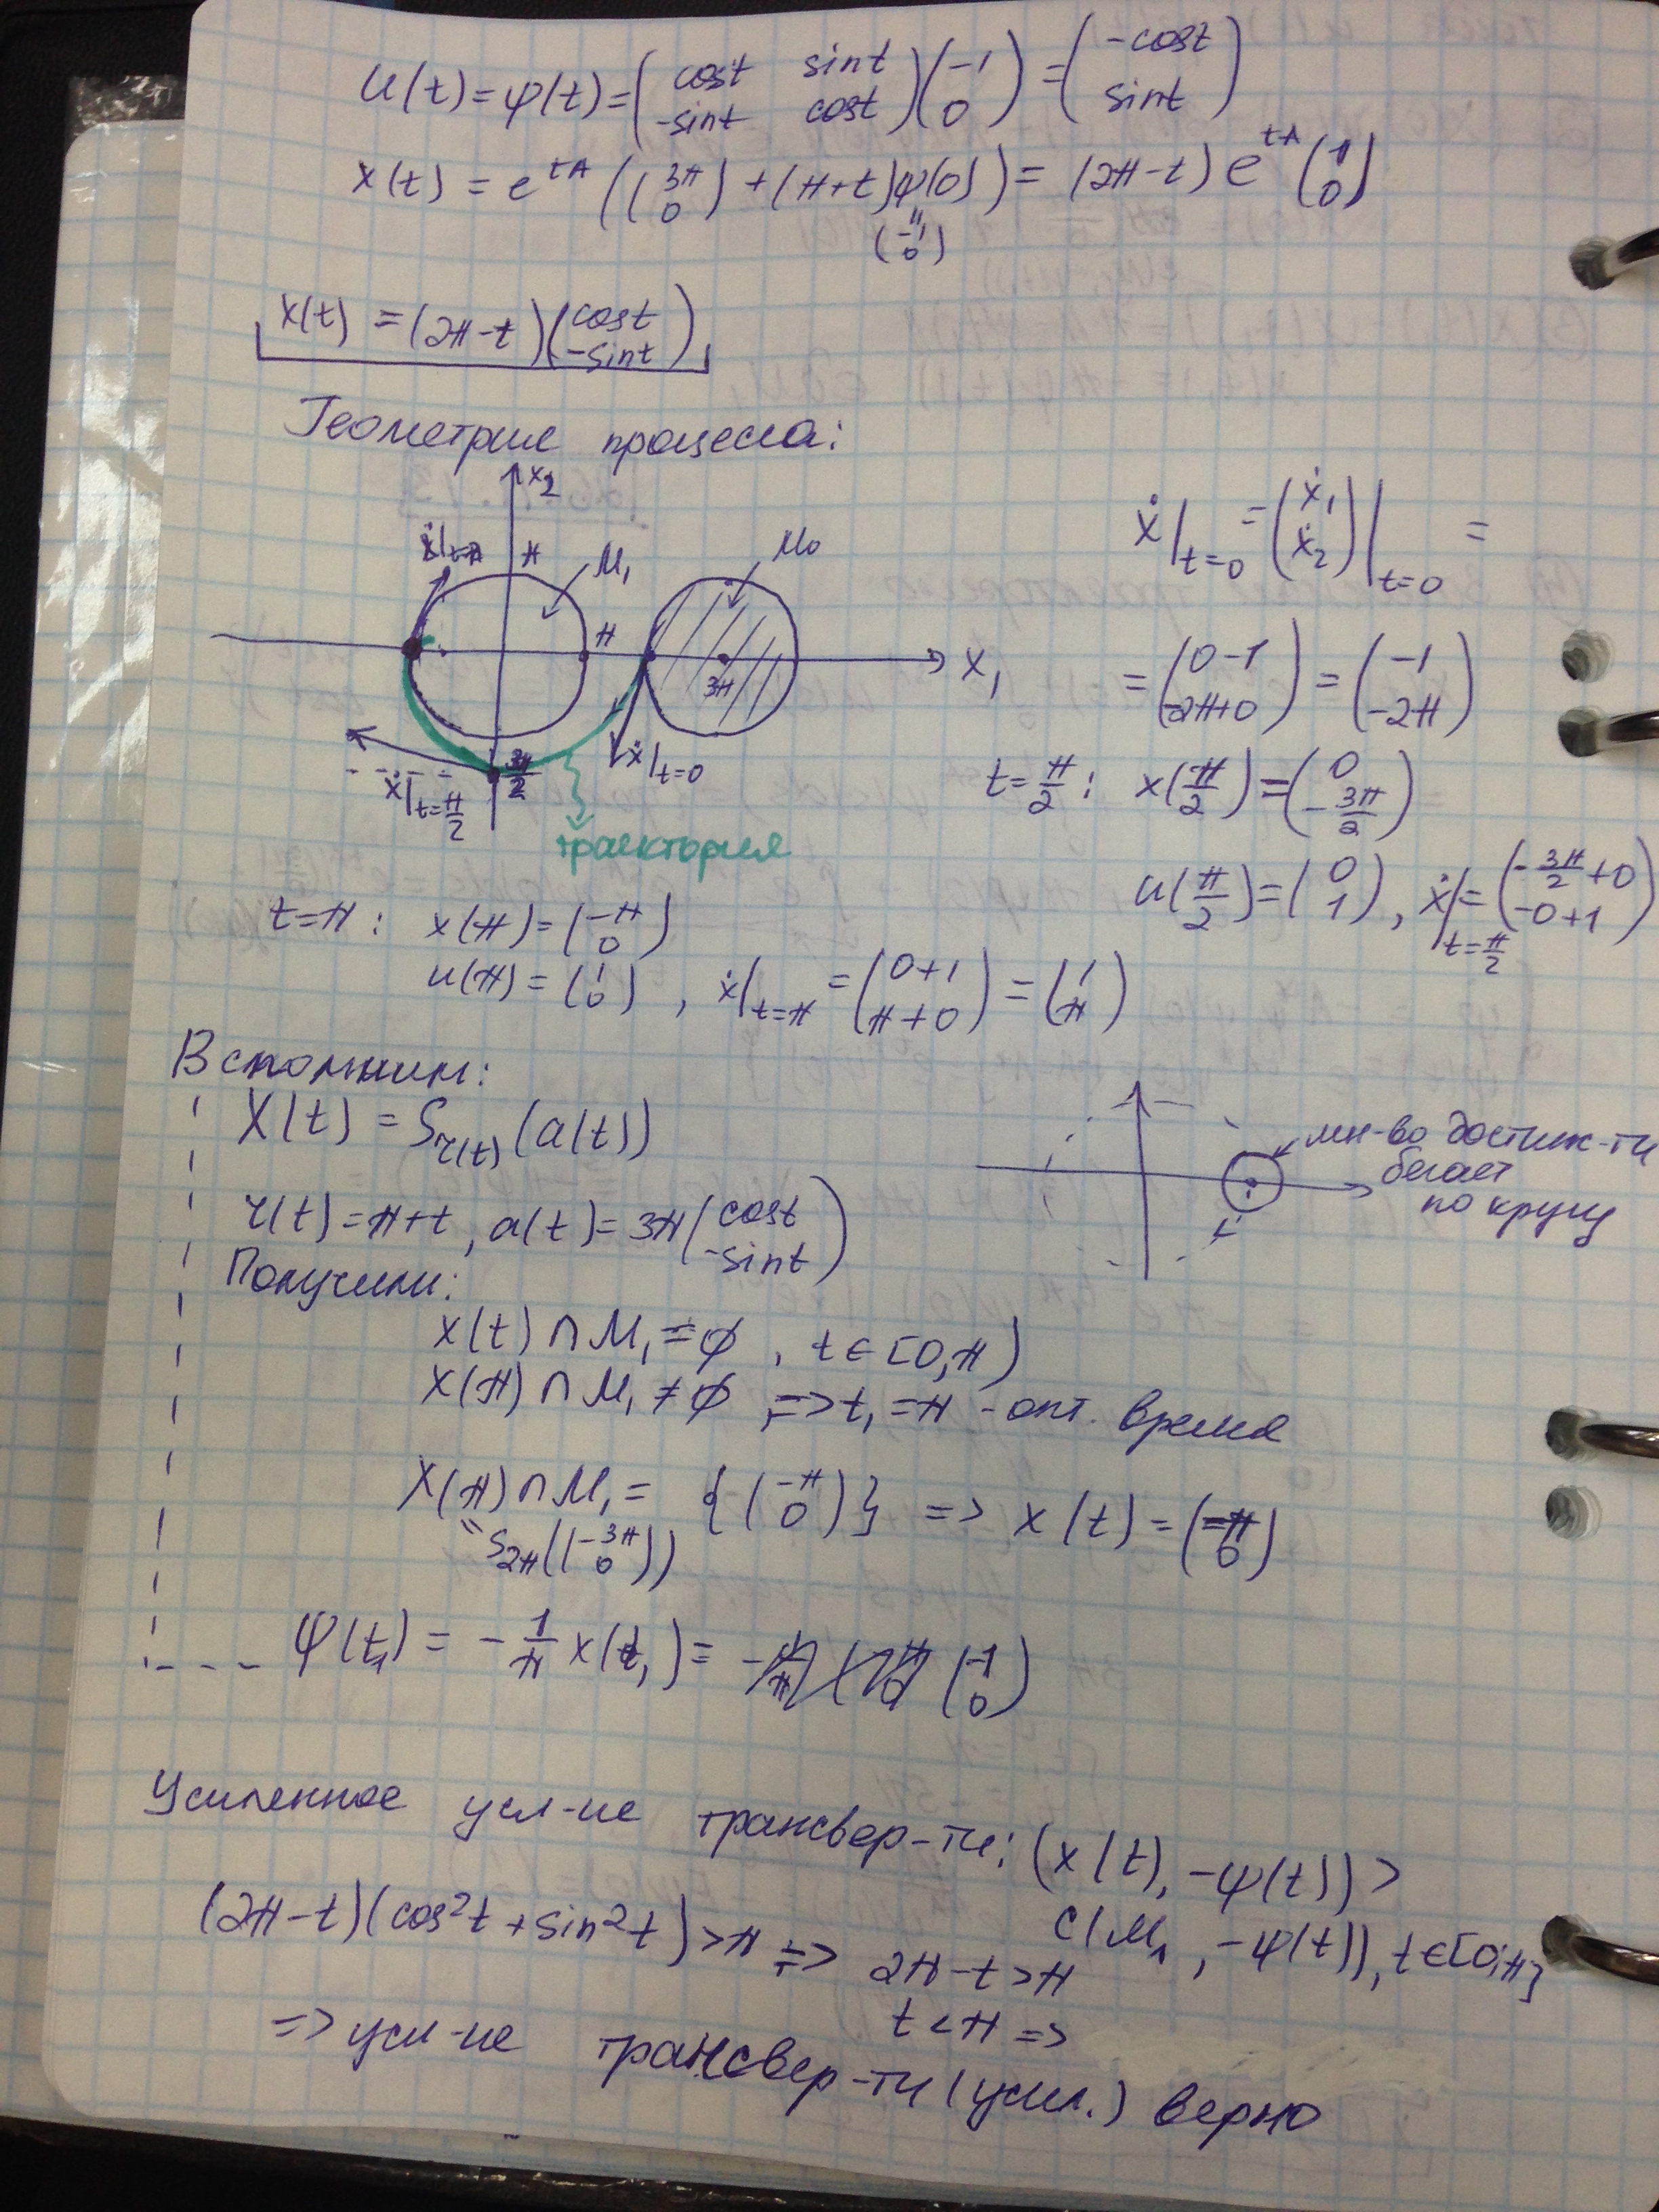 u(t) = ψ(t) = (cost sint; -sint cost)(-1; 0) = (-cost; sint)
x(t) = e^{tA} ((3π; 0) + (π+t)ψ(0)) = (2π-t) e^{tA} (1; 0)
(-1; 0)
x(t) = (2π-t)(cost; -sint)
Геометрия процесса:
x₂
ẋ|t=π
π
M₁
M₀
π
3π
x₁
ẋ|t=0
3π/2
ẋ|t=π/2
траектория
ẋ|t=0 = (ẋ₁; ẋ₂)|t=0 =
= (0-1; -2π+0) = (-1; -2π)
t=π/2: x(π/2) = (0; -3π/2)
u(π/2) = (0; 1), ẋ|t=π/2 = (-3π/2+0; -0+1)
t=π: x(π) = (-π; 0)
u(π) = (1; 0), ẋ|t=π = (0+1; π+0) = (1; π)
Вспомним:
X(t) = S_{r(t)}(a(t))
r(t) = π+t, a(t) = 3π(cost; -sint)
мн-во достиж-ти
бегает
по кругу
Получили:
X(t) ∩ M₁ = ∅, t ∈ [0, π)
X(π) ∩ M₁ ≠ ∅, => t₁ = π - опт. время
X(π) ∩ M₁ = {(-π; 0)} => x(t) = (-π; 0)
" S_{2π}((-3π; 0))
ψ(t₁) = -1/π x(t₁) = (-1; 0)
Усиленное усл-ие трансвер-ти: (x(t), -ψ(t)) >
c(M₁, -ψ(t)), t ∈ [0, π]
(2π-t)(cos²t + sin²t) > π => 2π-t > π
t < π =>
=> усл-ие трансвер-ти (усил.) верно